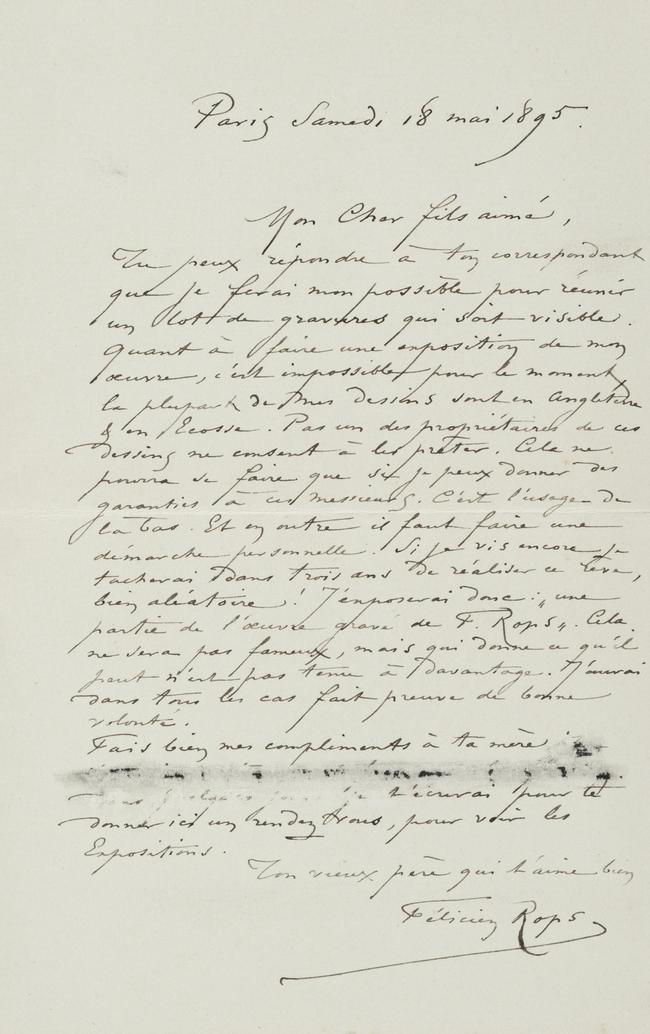 Paris Samedi 18 mai 1895.
Mon Cher fils aimé,
Tu peux répondre à ton correspondant
que je ferai mon possible pour réunir
un lot de gravures qui soit visible.
Quant à faire une exposition de mon
œuvre, c'est impossible pour le moment
la plupart de mes dessins sont en Angleterre
& en Ecosse. Pas un des propriétaires de ces
dessins ne consent à les prêter. Cela ne
pourra se faire que si je peux donner des
garanties à ces messieurs. C'est l'usage de
la bas. Et en outre il faut faire une
démarche personnelle. Si je vis encore je
tacherai dans trois ans de réaliser ce rêve,
bien aléatoire ! J'exposerai donc : „ une
partie de l'œuvre gravé de F. Rops „. Cela
ne sera pas fameux, mais qui donne ce qu'il
peut n'est pas tenu à davantage. J'aurai
dans tous les cas fait preuve de bonne
volonté.
Fais bien mes compliments à ta mère
t'écrirai pour te
donner ici un rendez vous, pour voir les
Expositions.
Ton vieux père qui t'aime bien
Félicien Rops